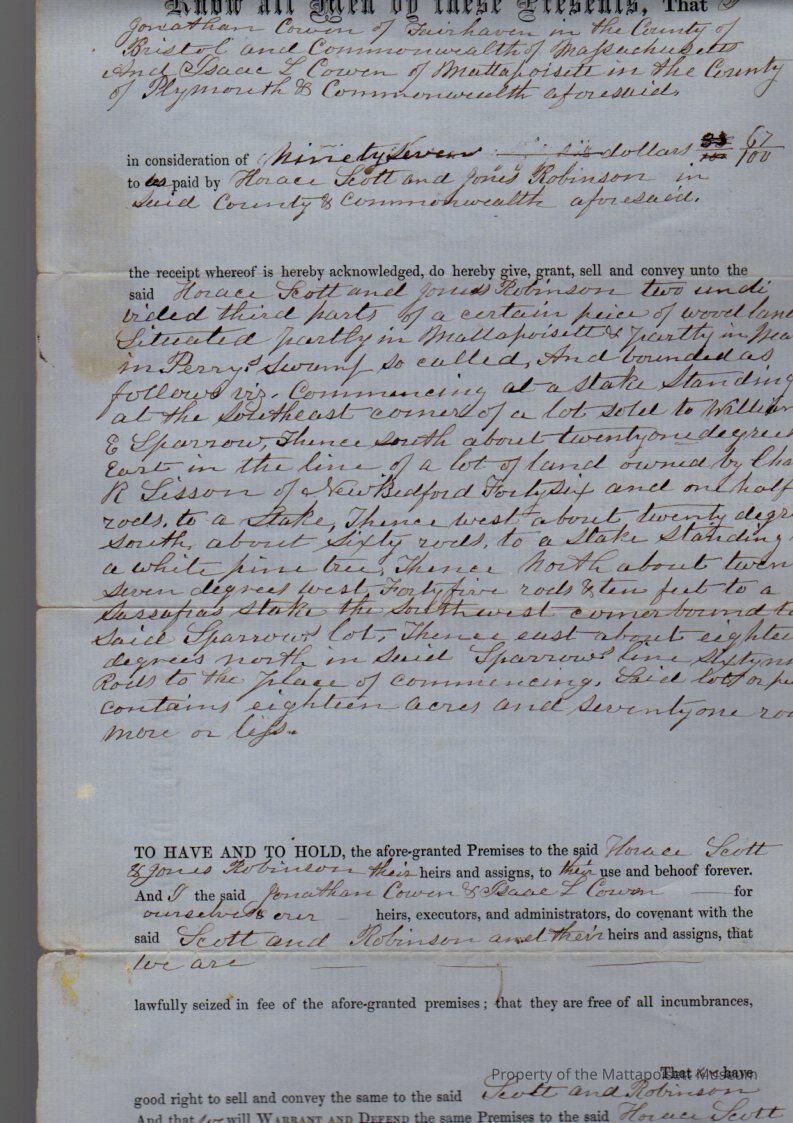 Know all Men by these Presents, That I
Jonathan Cowen of Fairhaven in the County of
Bristol and Commonwealth of Massachusetts
And Isaac L Cowen of Mattapoisett in the County
of Plymouth & Commonwealth aforesaid.
in consideration of Ninety Seven dollars 67/100
to us paid by Horace Scott and Jones Robinson in
said County & Commonwealth aforesaid.
the receipt whereof is hereby acknowledged, do hereby give, grant, sell and convey unto the
said Horace Scott and Jones Robinson two undi
vided third parts of a certain peice of wood land
Situated partly in Mattapoisett & partly in Ma
in Perrys swamp so called, And bounded as
follows viz. Commencing at a stake Standing
at the Southeast corner of a lot sold to William
E Sparrow, Thence south about twentyone degrees
East in the line of a lot of land owned by Cha
R Sisson of New Bedford Forty Six and one half
rods, to a Stake, Thence west about twenty degr
South, about Sixty rods, to a Stake Standing
a white pine tree, Thence North about twen
seven degrees west, Fortyfive rods & ten feet to a
Sassafras stake the Southwest cornerbound to
Said Sparrows lot, Thence east about eightee
degrees north in Said Sparrows line Sixtyni
Rods to the place of commencing. Said lot or pe
contains eighteen acres and seventyone ro
more or less.
TO HAVE AND TO HOLD, the afore-granted Premises to the said Horace Scott
& Jones Robinson their heirs and assigns, to their use and behoof forever.
And I the said Jonathan Cowen & Isaac L Cowen for
ourselves & our heirs, executors, and administrators, do covenant with the
said Scott and Robinson and their heirs and assigns, that
we are
lawfully seized in fee of the afore-granted premises; that they are free of all incumbrances,
That we have
Property of the Mattapoisett Museum
good right to sell and convey the same to the said Scott and Robinson
And that we will WARRANT AND DEFEND the same Premises to the said Horace Scott